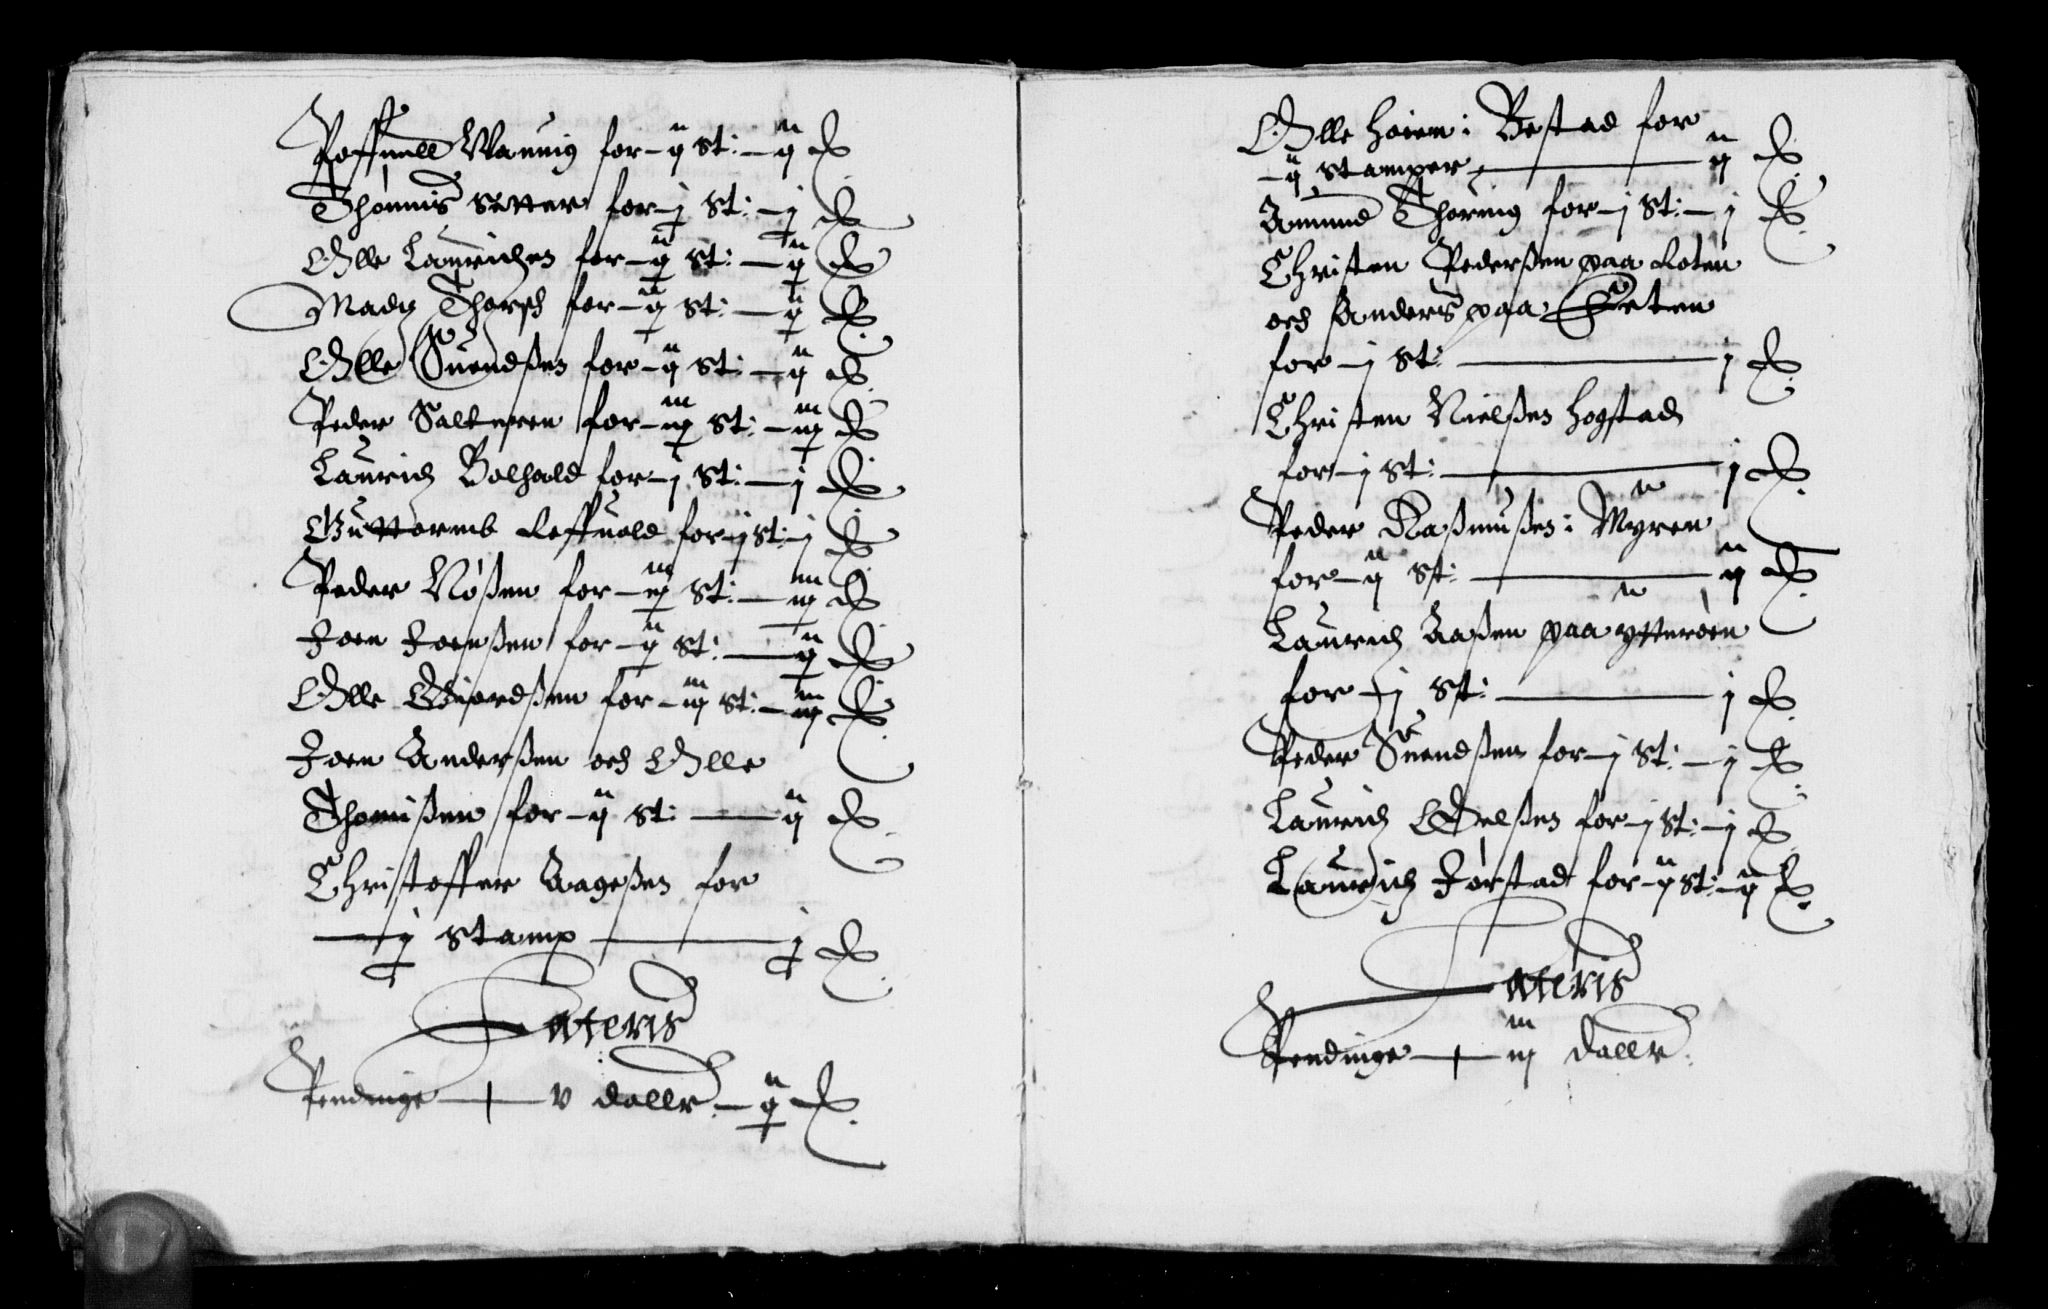 Poffuell Wannig for - ij St: - ij ɉ
Thommis Setter for - j St: - j ɉ
Olle Lauridzen for - ij St: - ij ɉ
Madz Thorsß for - ij St: - ij ɉ
Olle Suendßen for - ij St: - ij ɉ
Peder Salteren for - iij St: - iij ɉ
Lauridz Bolhald for - j St: - j ɉ
Guttormb Leffuold for j St: - j ɉ
Peder Nøßen for - iij St: - iij ɉ
Joen Joenßen for - ij St: - ij ɉ
Olle Giordßen for - iij St: - iij ɉ
Joen Anderßen och Olle
Thomißen for - ij St: - ij ɉ
Christoffer Aageßen for
- j Stamp - j ɉ
Lateris
Pendinge - v dallr - ij ɉ
Olle Høiem i Bestad for
- ij Stamper - ij ɉ
Amund Thoring for - j St: - j ɉ
Christen Pederßen paa Loten
och Anders paa Eten
for - j St: - j ɉ
Christen Nielßen Hogstad
for - j St: - j ɉ
Peder Raßmußen i Myren
for - ij St: - ij ɉ
Lauridz Aaßen paa ytterøen
for - j St: - j ɉ
Peder Suendßen for - j St: - j ɉ
Lauridz Oelßen for - j St: - j ɉ
Lauridz Jørstad for - ij St: - ij ɉ
Lateris
Pendinge - iij dallr.